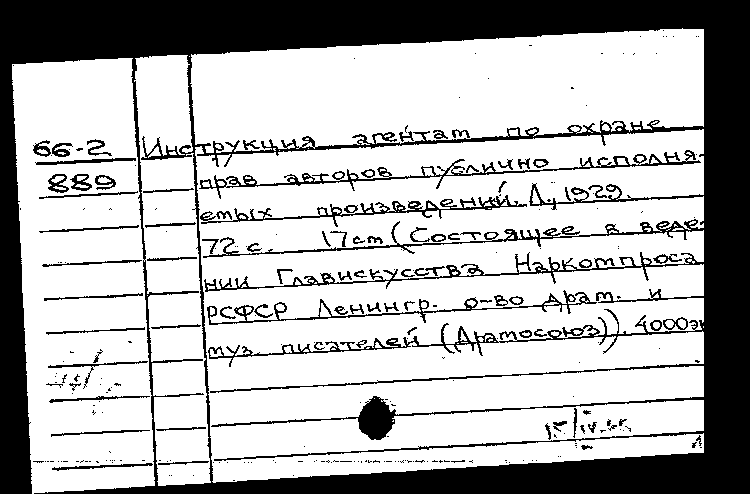 66-2 Инструкция агентам по охране
889 прав авторов публично исполня-
емых произведений. Л., 1929.
72 с. 17 см (Состоящее в веде-
нии Главискусства Наркомпроса
РСФСР Ленингр. о-во драт. и
муз. писателей (Драмосоюз)). 4000 эк